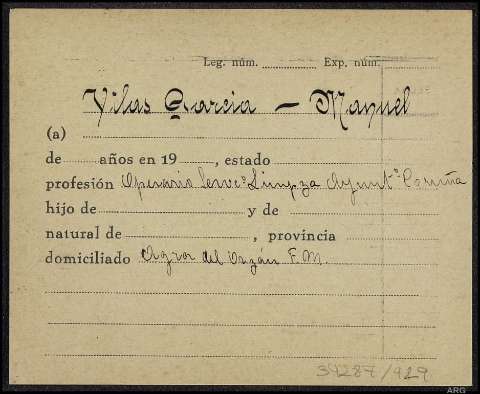 Leg. núm. Exp. núm.
Vilas Garcia — Manuel
(a)
de años en 19 , estado
profesión Operario Servcº Limpza Ayuntº Coruña
hijo de y de
natural de , provincia
domiciliado Agra del Orzán F.M.
39287/929
ARG